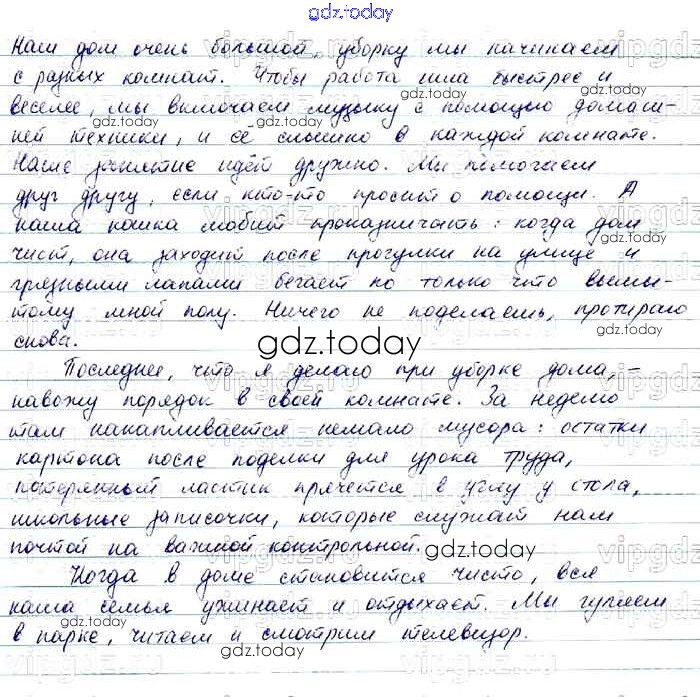 gdz.today
Наш дом очень большой, уборку мы начинаем
с разных комнат. Чтобы работа шла быстрее и
веселее, мы включаем музыку с помощью домаш-
ней техники, и её слышно в каждой комнате.
Наше занятие идёт дружно. Мы помогаем
друг другу, если кто-то просит о помощи. А
наша кошка любит проказничать: когда дом
чист, она заходит после прогулки на улице и
грязными лапами бегает по только что вымы-
тому мной полу. Ничего не поделаешь, протираю
снова.
gdz.today
Последнее, что я делаю при уборке дома, -
навожу порядок в своей комнате. За неделю
там накапливается немало мусора: остатки
картона после поделки для урока труда,
потерянный ластик прячется в углу у стола,
школьные записочки, которые служат нам
почтой на важной контрольной.
gdz.today
Когда в доме становится чисто, вся
наша семья ужинает и отдыхает. Мы гуляем
в парке, читаем и смотрим телевизор.